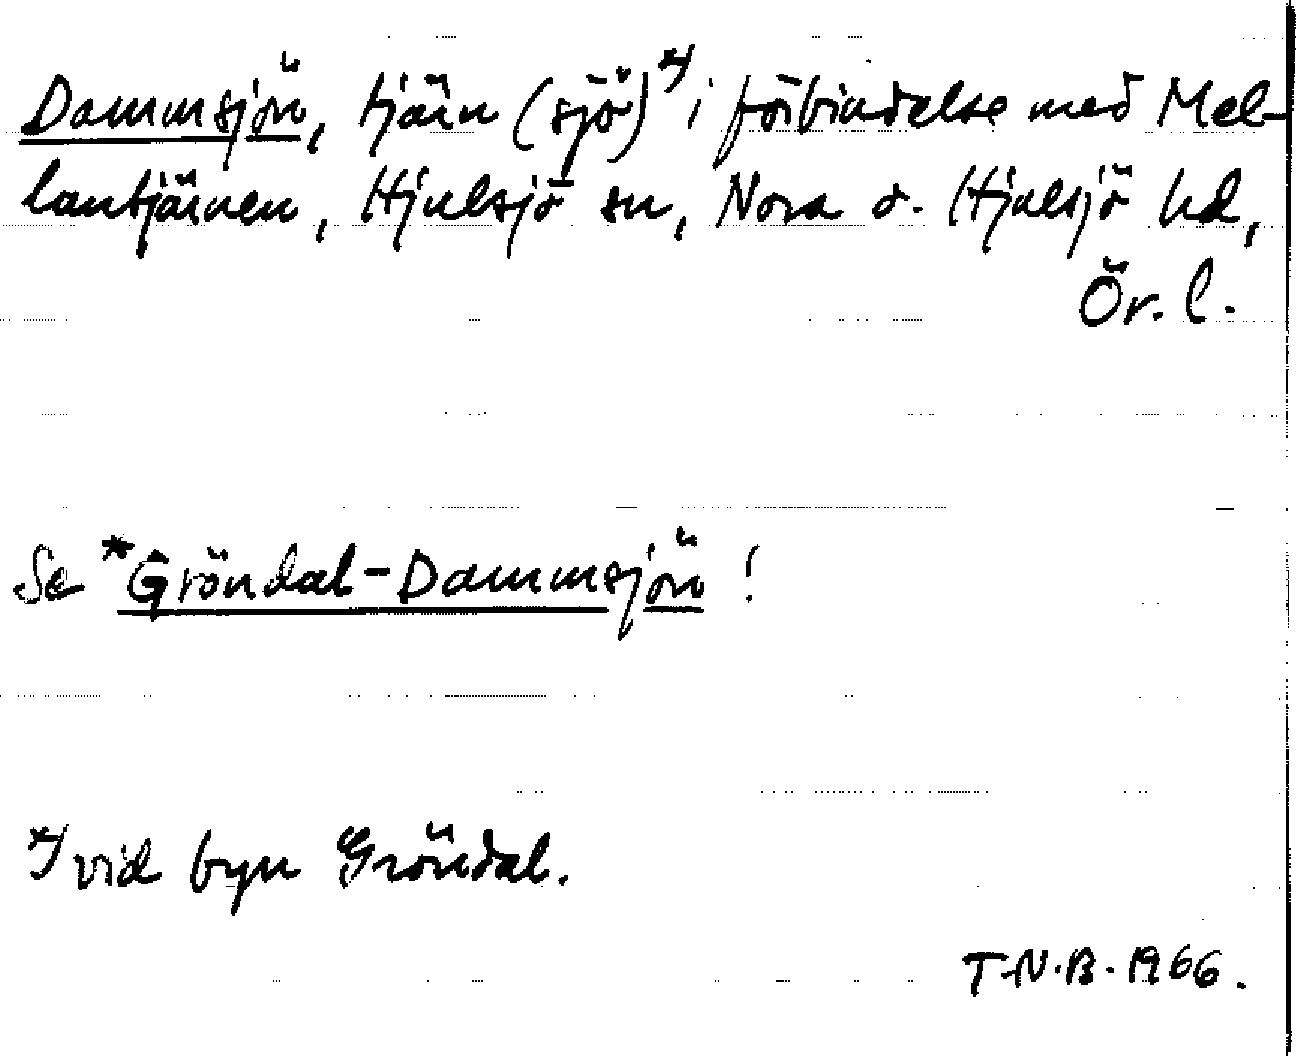 Dammsjön, tjärn (sjö)*) i förbindelse med Mel-
lantjärnen, Hjulsjö sn, Nora o. Hjulsjö hd,
Ör. l.
Se *Gröndal-Dammsjön !
*) vid byn Gröndal.
T.N.B. 1966.